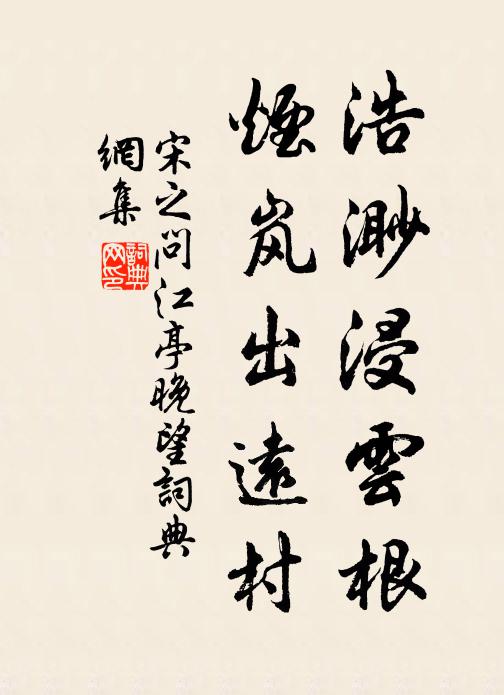 浩渺浸雲根
煙岚出遠村
宋之问江亭晚望詞典
網集
詞典
网印